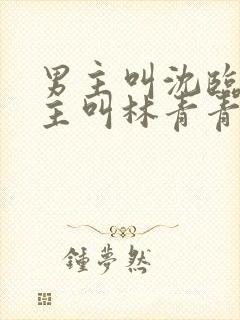 男主叫沈臨
主叫林青青
鍾夢然